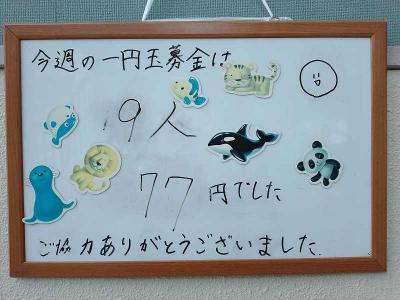 今週の一円玉募金は
9人
77円でした
ご協力ありがとうございました.